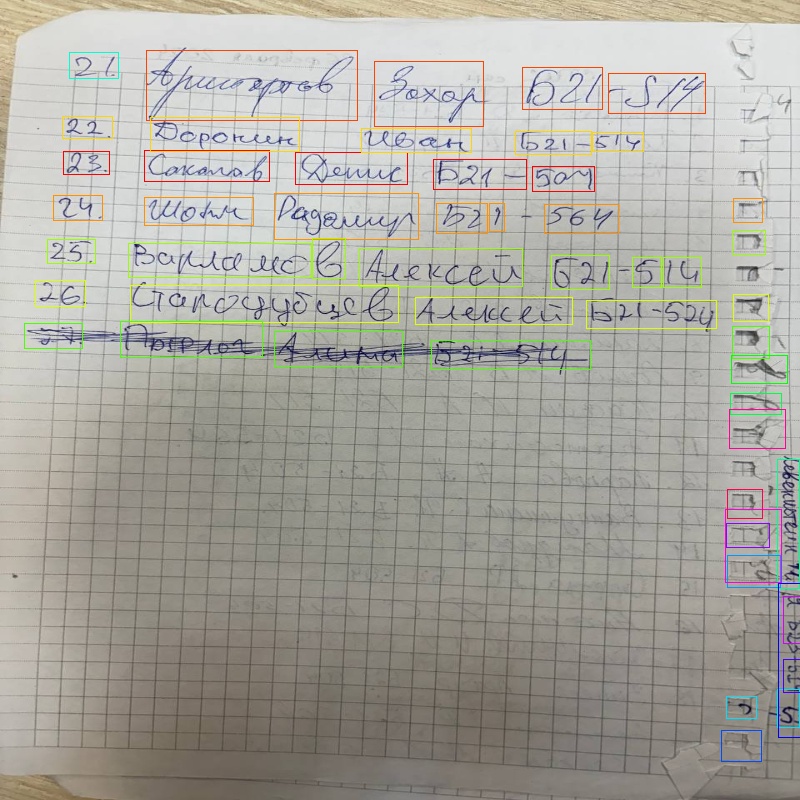 21. Аристартов Захар Б21-514
22. Доронин Иван Б21-514
23. Сокалав Денис Б21-504
24. Шотт Радамир Б21-564
25. Варламов Алексей Б21-514
26. Старосубцев Алексей Б21-524
27. Алина Б21-514